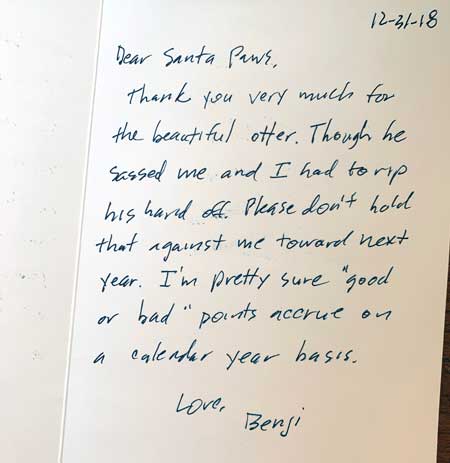 12-31-18
Dear Santa Paws,
Thank you very much for
the beautiful otter. Though he
sassed me and I had to rip
his hand off. Please don't hold
that against me toward next
year. I'm pretty sure "good
or bad" points accrue on
a calendar year basis.
Love,
Benji